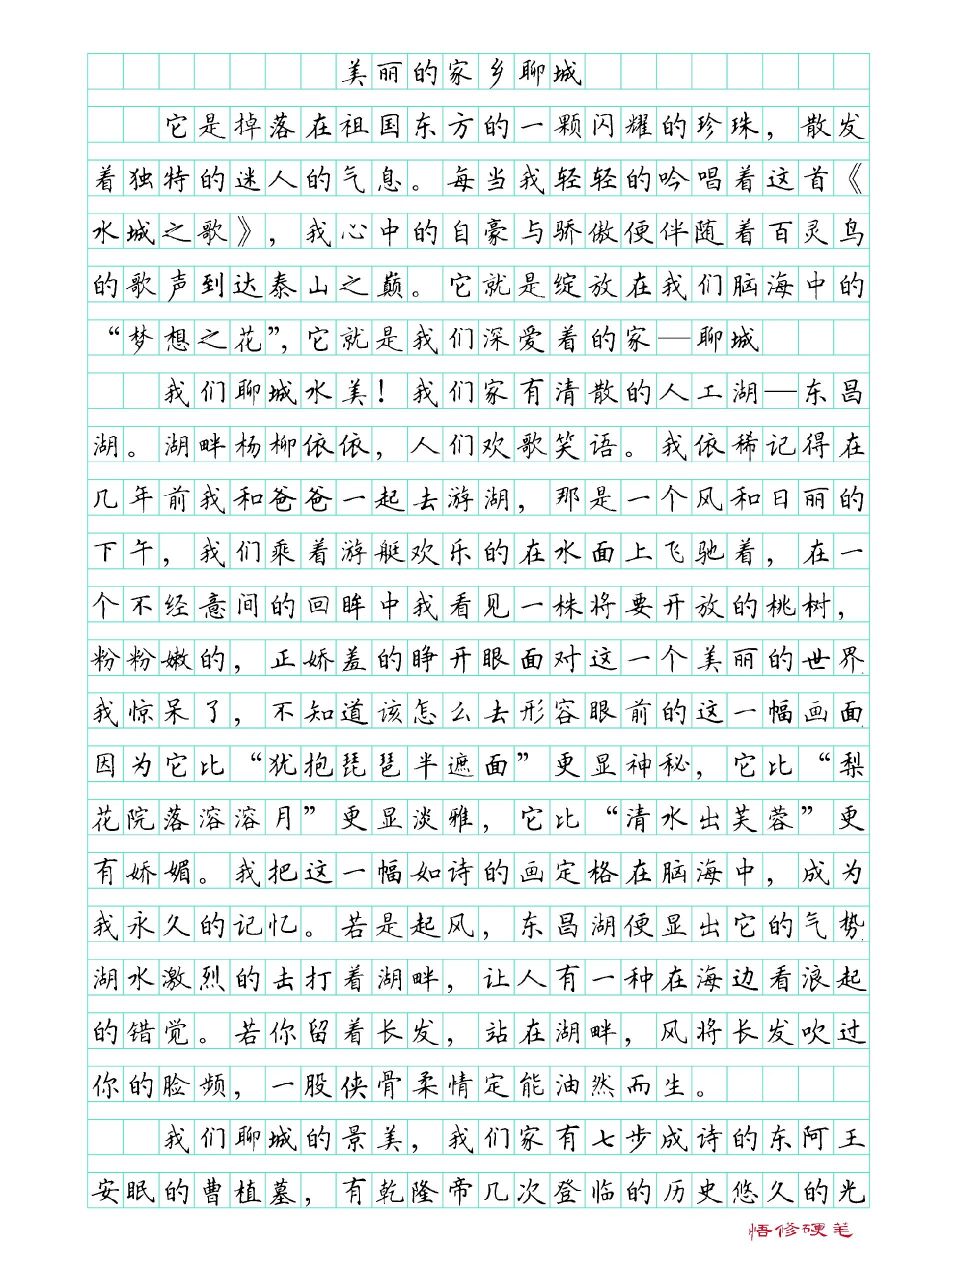 美丽的家乡聊城
它是掉落在祖国东方的一颗闪耀的珍珠，散发
着独特的迷人的气息。每当我轻轻的吟唱着这首《
水城之歌》，我心中的自豪与骄傲便伴随着百灵鸟
的歌声到达泰山之巅。它就是绽放在我们脑海中的
“梦想之花”，它就是我们深爱着的家—聊城
我们聊城水美！我们家有清散的人工湖—东昌
湖。湖畔杨柳依依，人们欢歌笑语。我依稀记得在
几年前我和爸爸一起去游湖，那是一个风和日丽的
下午，我们乘着游艇欢乐的在水面上飞驰着，在一
个不经意间的回眸中我看见一株将要开放的桃树，
粉粉嫩的，正娇羞的睁开眼面对这一个美丽的世界
我惊呆了，不知道该怎么去形容眼前的这一幅画面
因为它比“犹抱琵琶半遮面”更显神秘，它比“梨
花院落溶溶月”更显淡雅，它比“清水出芙蓉”更
有娇媚。我把这一幅如诗的画定格在脑海中，成为
我永久的记忆。若是起风，东昌湖便显出它的气势
湖水激烈的击打着湖畔，让人有一种在海边看浪起
的错觉。若你留着长发，站在湖畔，风将长发吹过
你的脸频，一股侠骨柔情定能油然而生。
我们聊城的景美，我们家有七步成诗的东阿王
安眠的曹植墓，有乾隆帝几次登临的历史悠久的光
悟修硬笔